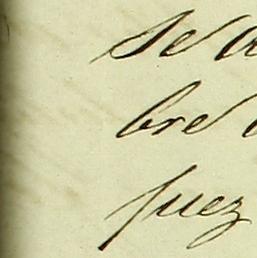 se a
bre
juez